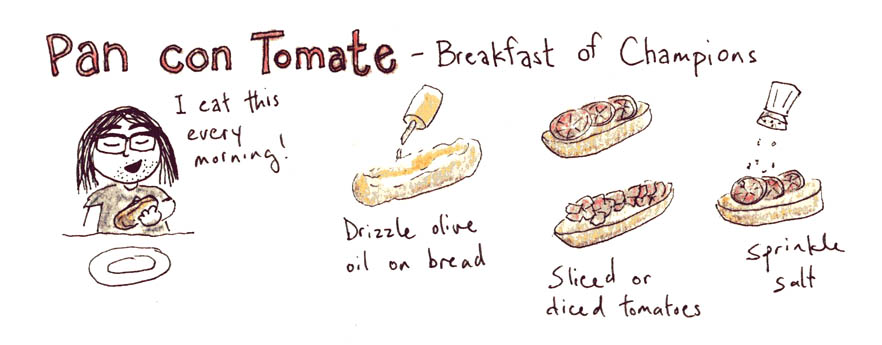 Pan con Tomate - Breakfast of Champions
I eat this
every
morning!
Drizzle olive
oil on bread
Sliced or
diced tomatoes
Sprinkle
salt